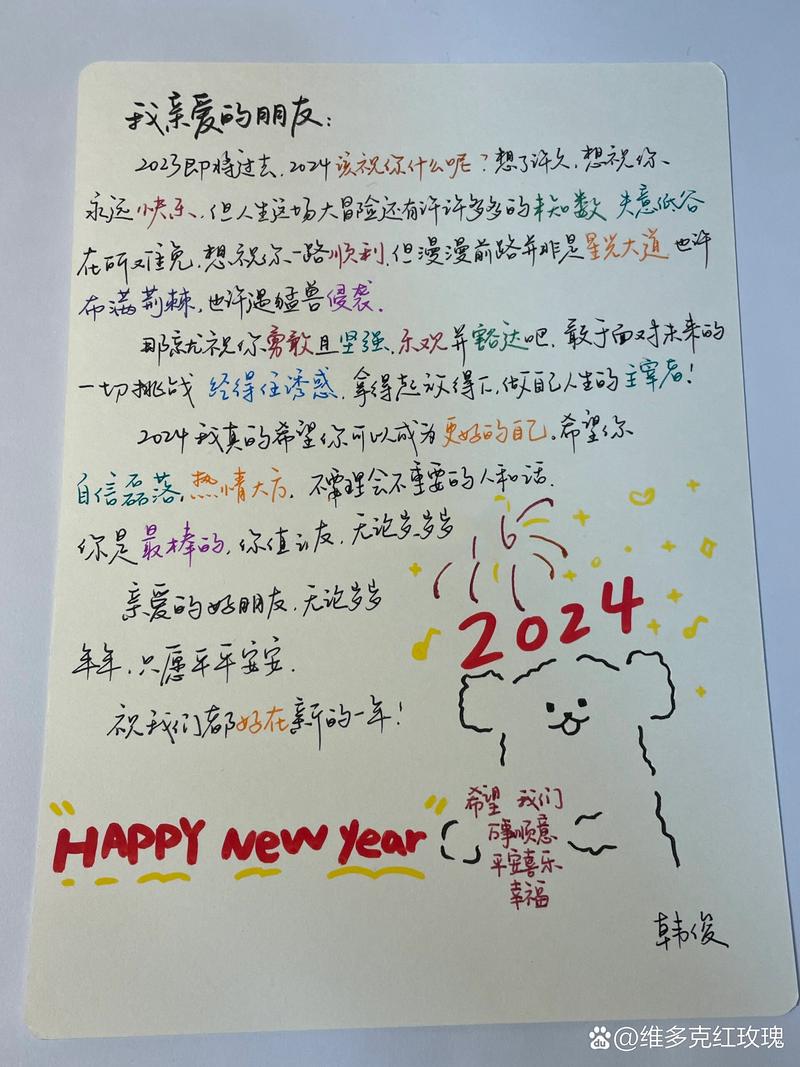 我亲爱的朋友:
2023即将过去,2024该祝你什么呢?想了许久,想祝你
永远快乐,但人生这场大冒险还有许许多多的未知数 失意低谷
在所难免,想祝你一路顺利,但漫漫前路并非是星光大道也许
布满荆棘,也许遇猛兽侵袭.
那就祝你勇敢且坚强、乐观并豁达吧,敢于面对未来的
一切挑战 经得住诱惑,拿得起放得下,做自己人生的主宰者!
2024我真的希望你可以成为更好的自己。希望你
自信磊落,热情大方,不要理会不重要的人和话.
你是最棒的,你值,无论岁岁岁
亲爱的好朋友,无论岁岁
年年,只愿平平安安.
祝我们都好在新的一年!
2024
"HAPPY New Year"
希望 我们
万事顺意
平安喜乐
幸福
韩俊
du @维多克红玫瑰